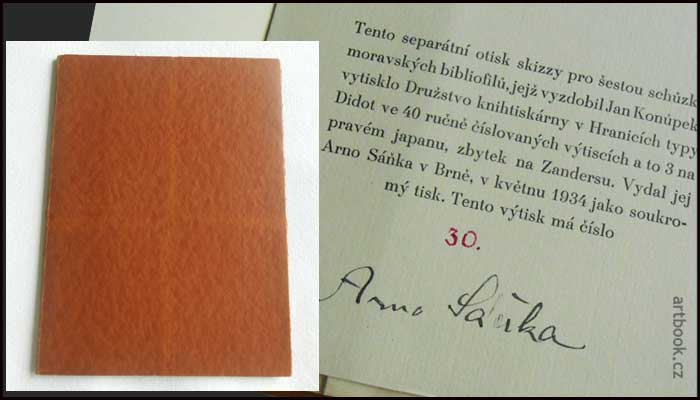 Tento separátní otisk skizzy pro šestou schůzk
moravských bibliofilů, jejž vyzdobil Jan Konůpek
vytisklo Družstvo knihtiskárny v Hranicích typy
Didot ve 40 ručně číslovaných výtiscích a to 3 na
pravém japanu, zbytek na Zandersu. Vydal jej
Arno Sáňka v Brně, v květnu 1934 jako soukro-
mý tisk. Tento výtisk má číslo
30.
Arno Sáňka
artbook.cz